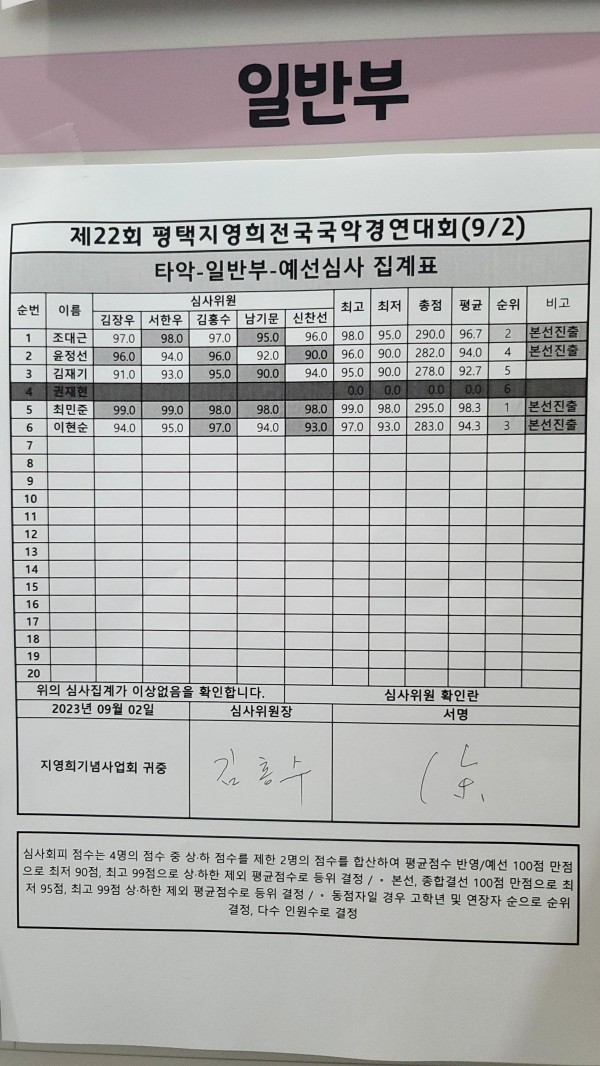 일반부
제22회 평택지영희전국국악경연대회(9/2)
타악-일반부-예선심사 집계표
순번 이름 심사위원 최고 최저 총점 평균 순위 비고
김장우 서한우 김홍수 남기문 신찬선
1 조대근 97.0 98.0 97.0 95.0 96.0 98.0 95.0 290.0 96.7 2 본선진출
2 윤정선 96.0 94.0 96.0 92.0 90.0 96.0 90.0 282.0 94.0 4 본선진출
3 김재기 91.0 93.0 95.0 90.0 94.0 95.0 90.0 278.0 92.7 5
4 권재현 0.0 0.0 0.0 0.0 6
5 최민준 99.0 99.0 98.0 98.0 98.0 99.0 98.0 295.0 98.3 1 본선진출
6 이현순 94.0 95.0 97.0 94.0 93.0 97.0 93.0 283.0 94.3 3 본선진출
7
8
9
10
11
12
13
14
15
16
17
18
19
20
위의 심사집계가 이상없음을 확인합니다. 심사위원 확인란
2023년 09월 02일 심사위원장 서명
지영희기념사업회 귀중 김홍수
심사회피 점수는 4명의 점수 중 상·하 점수를 제한 2명의 점수를 합산하여 평균점수 반영/예선 100점 만점
으로 최저 90점, 최고 99점으로 상·하한 제외 평균점수로 등위 결정 / • 본선, 종합결선 100점 만점으로 최
저 95점, 최고 99점 상·하한 제외 평균점수로 등위 결정 / • 동점자일 경우 고학년 및 연장자 순으로 순위
결정, 다수 인원수로 결정